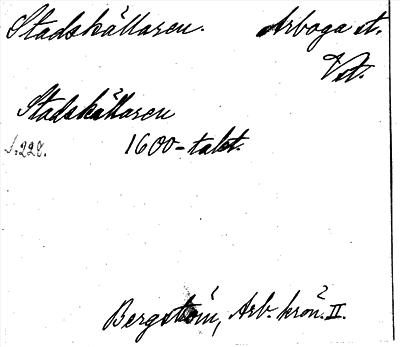 Stadskällaren. Arboga st.
Vst.
Stadskällaren
s. 228. 1600-talet.
Bergström, Arb. krön. II.